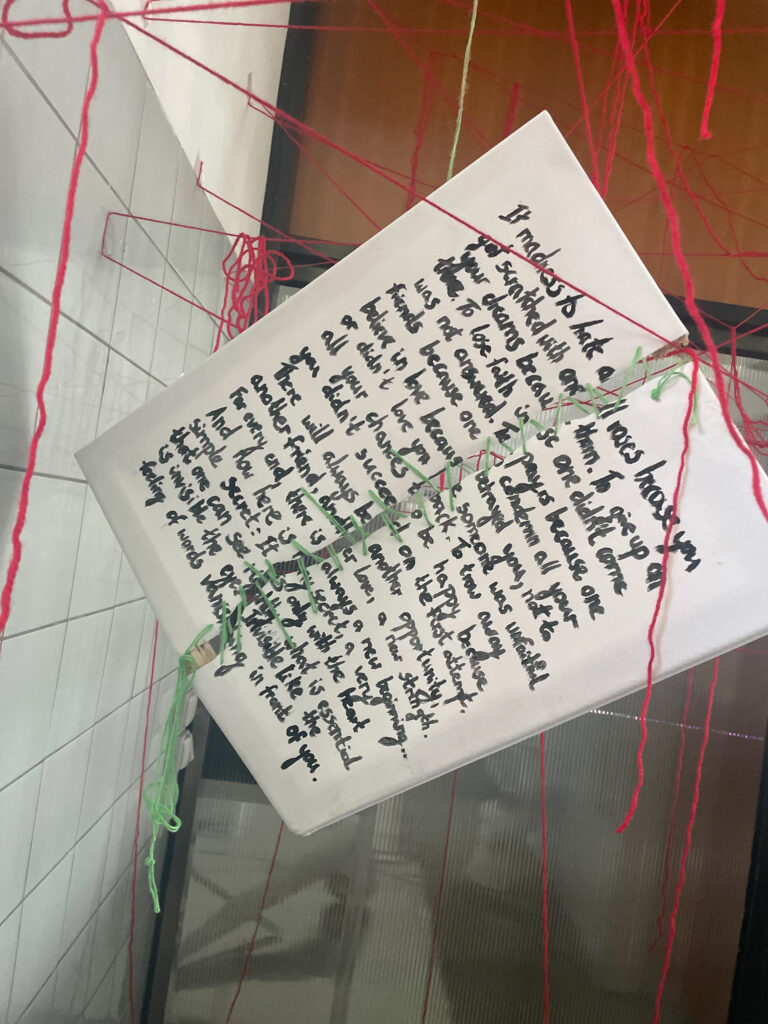 It madness to hate all roses because you
got scratched with one. To give up all
your dreams because one didn't come
true. To lose faith in prayers because one
was not answered, to condemn all your
friends because one betrayed you, not to
believe in love because someone was
or didn't love you back. To throw away
all your chances to be happy because
you didn't succeed on the first attempt.
There will always be another opportunity,
another friend, another love, a new strength.
For every end, there is always a new beginning..
And now here is secret, a very
simple secret: It is only with the heart
that one can see what is essential
is invisible like the invisible like the
of words in front of you.